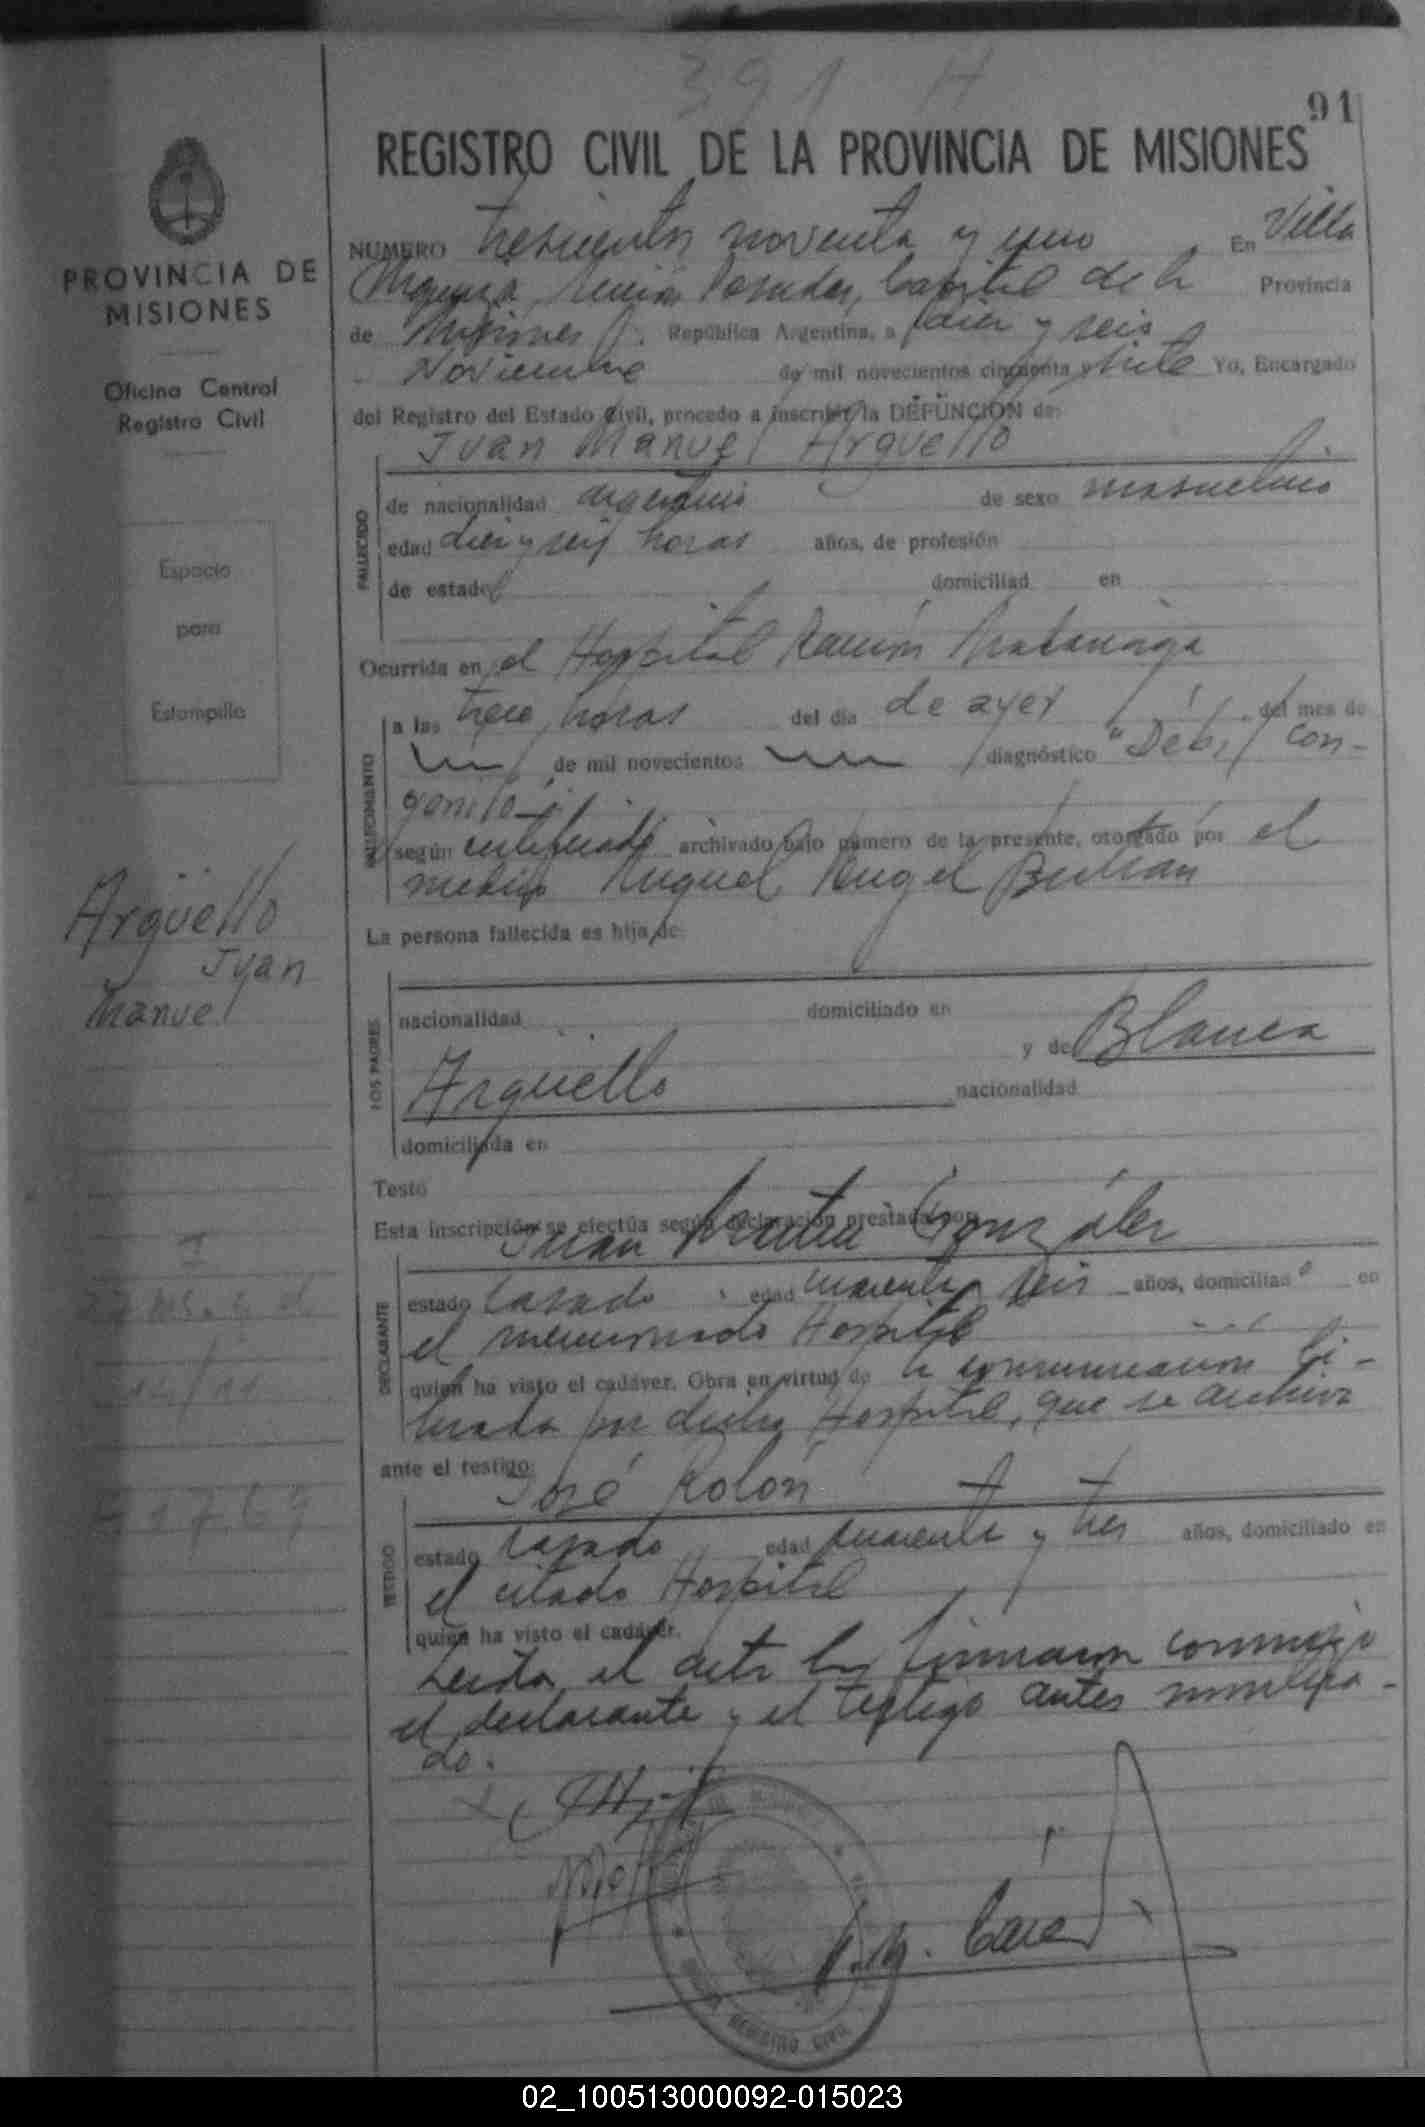 391 H
91
REGISTRO CIVIL DE LA PROVINCIA DE MISIONES
PROVINCIA DE
MISIONES
Oficina Central
Registro Civil
Espacio
para
Estampilla
Argüello
Juan
Manuel
NUMERO trescientos noventa y uno En Villa
Posadas, Capital de la Provincia
de Misiones República Argentina, a diez y seis
Noviembre de mil novecientos cincuenta y siete Yo, Encargado
del Registro del Estado Civil, procedo a inscribir la DEFUNCION de:
Juan Manuel Argüello
FALLECIDO
de nacionalidad argentino de sexo masculino
edad diez y seis horas años, de profesión
de estado domiciliad en
Ocurrida en el Hospital Ramón Madariaga
FALLECIMIENTO
a las trece horas del día de ayer del mes de
de mil novecientos diagnóstico "Debil con-
genito"
según certificado archivado bajo número de la presente, otorgado por el
medico Miguel Angel
La persona fallecida es hija de:
LOS PADRES
nacionalidad domiciliado en
y de Blanca
Argüello nacionalidad
domiciliada en
Testó
Esta inscripción se efectúa según declaración prestada por
Juan González
DECLARANTE
estado casado edad cuarenta y seis años, domiciliado en
el mencionado Hospital
quien ha visto el cadáver. Obra en virtud de la comunicacion li-
brada por dicho Hospital, que se archiva
ante el testigo:
José Rolón
TESTIGO
estado casado edad cuarenta y tres años, domiciliado en
el citado Hospital
quien ha visto el cadáver.
Leida el acta la firmaron conmigo
el declarante y el testigo antes nombra-
do.
REGISTRO CIVIL
02_100513000092-015023